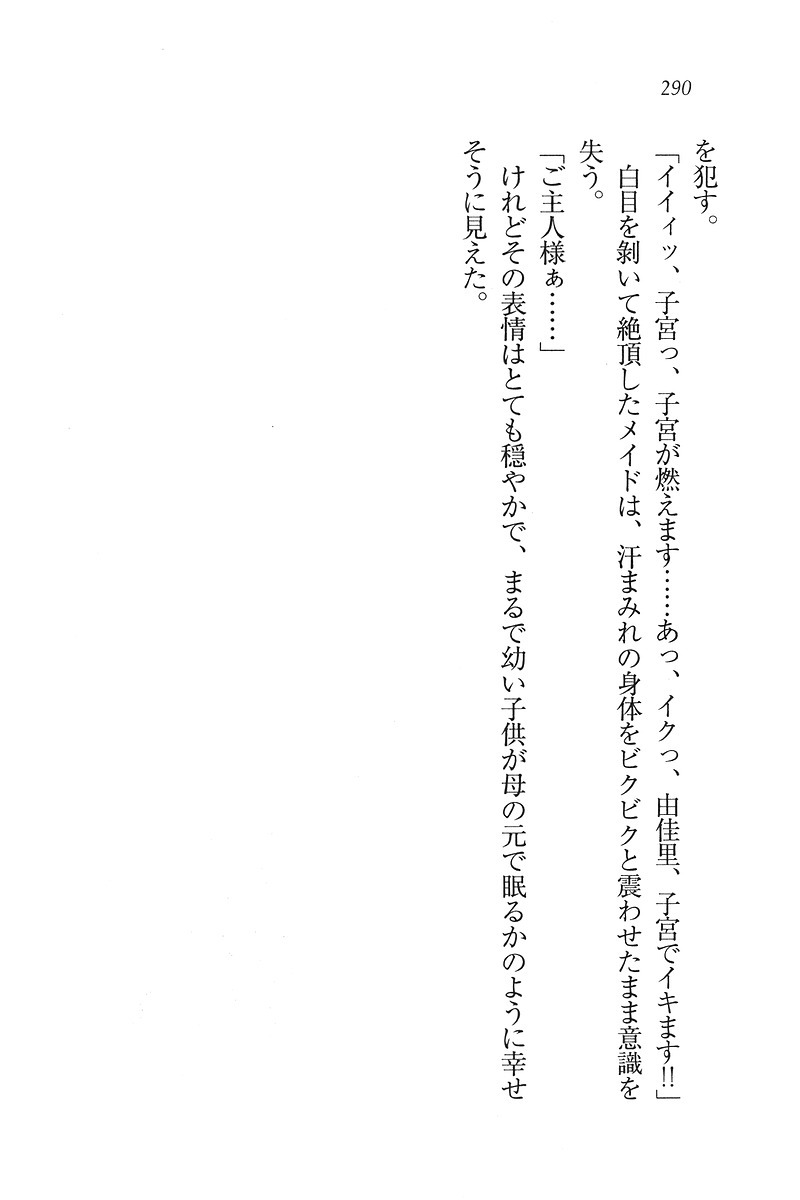 290
を犯す。
「イイィッ、子宮っ、子宮が燃えます……あっ、イクっ、由佳里、子宮でイキます!!」
　白目を剝いて絶頂したメイドは、汗まみれの身体をビクビクと震わせたまま意識を
失う。
「ご主人様ぁ……」
　けれどその表情はとても穏やかで、まるで幼い子供が母の元で眠るかのように幸せ
そうに見えた。